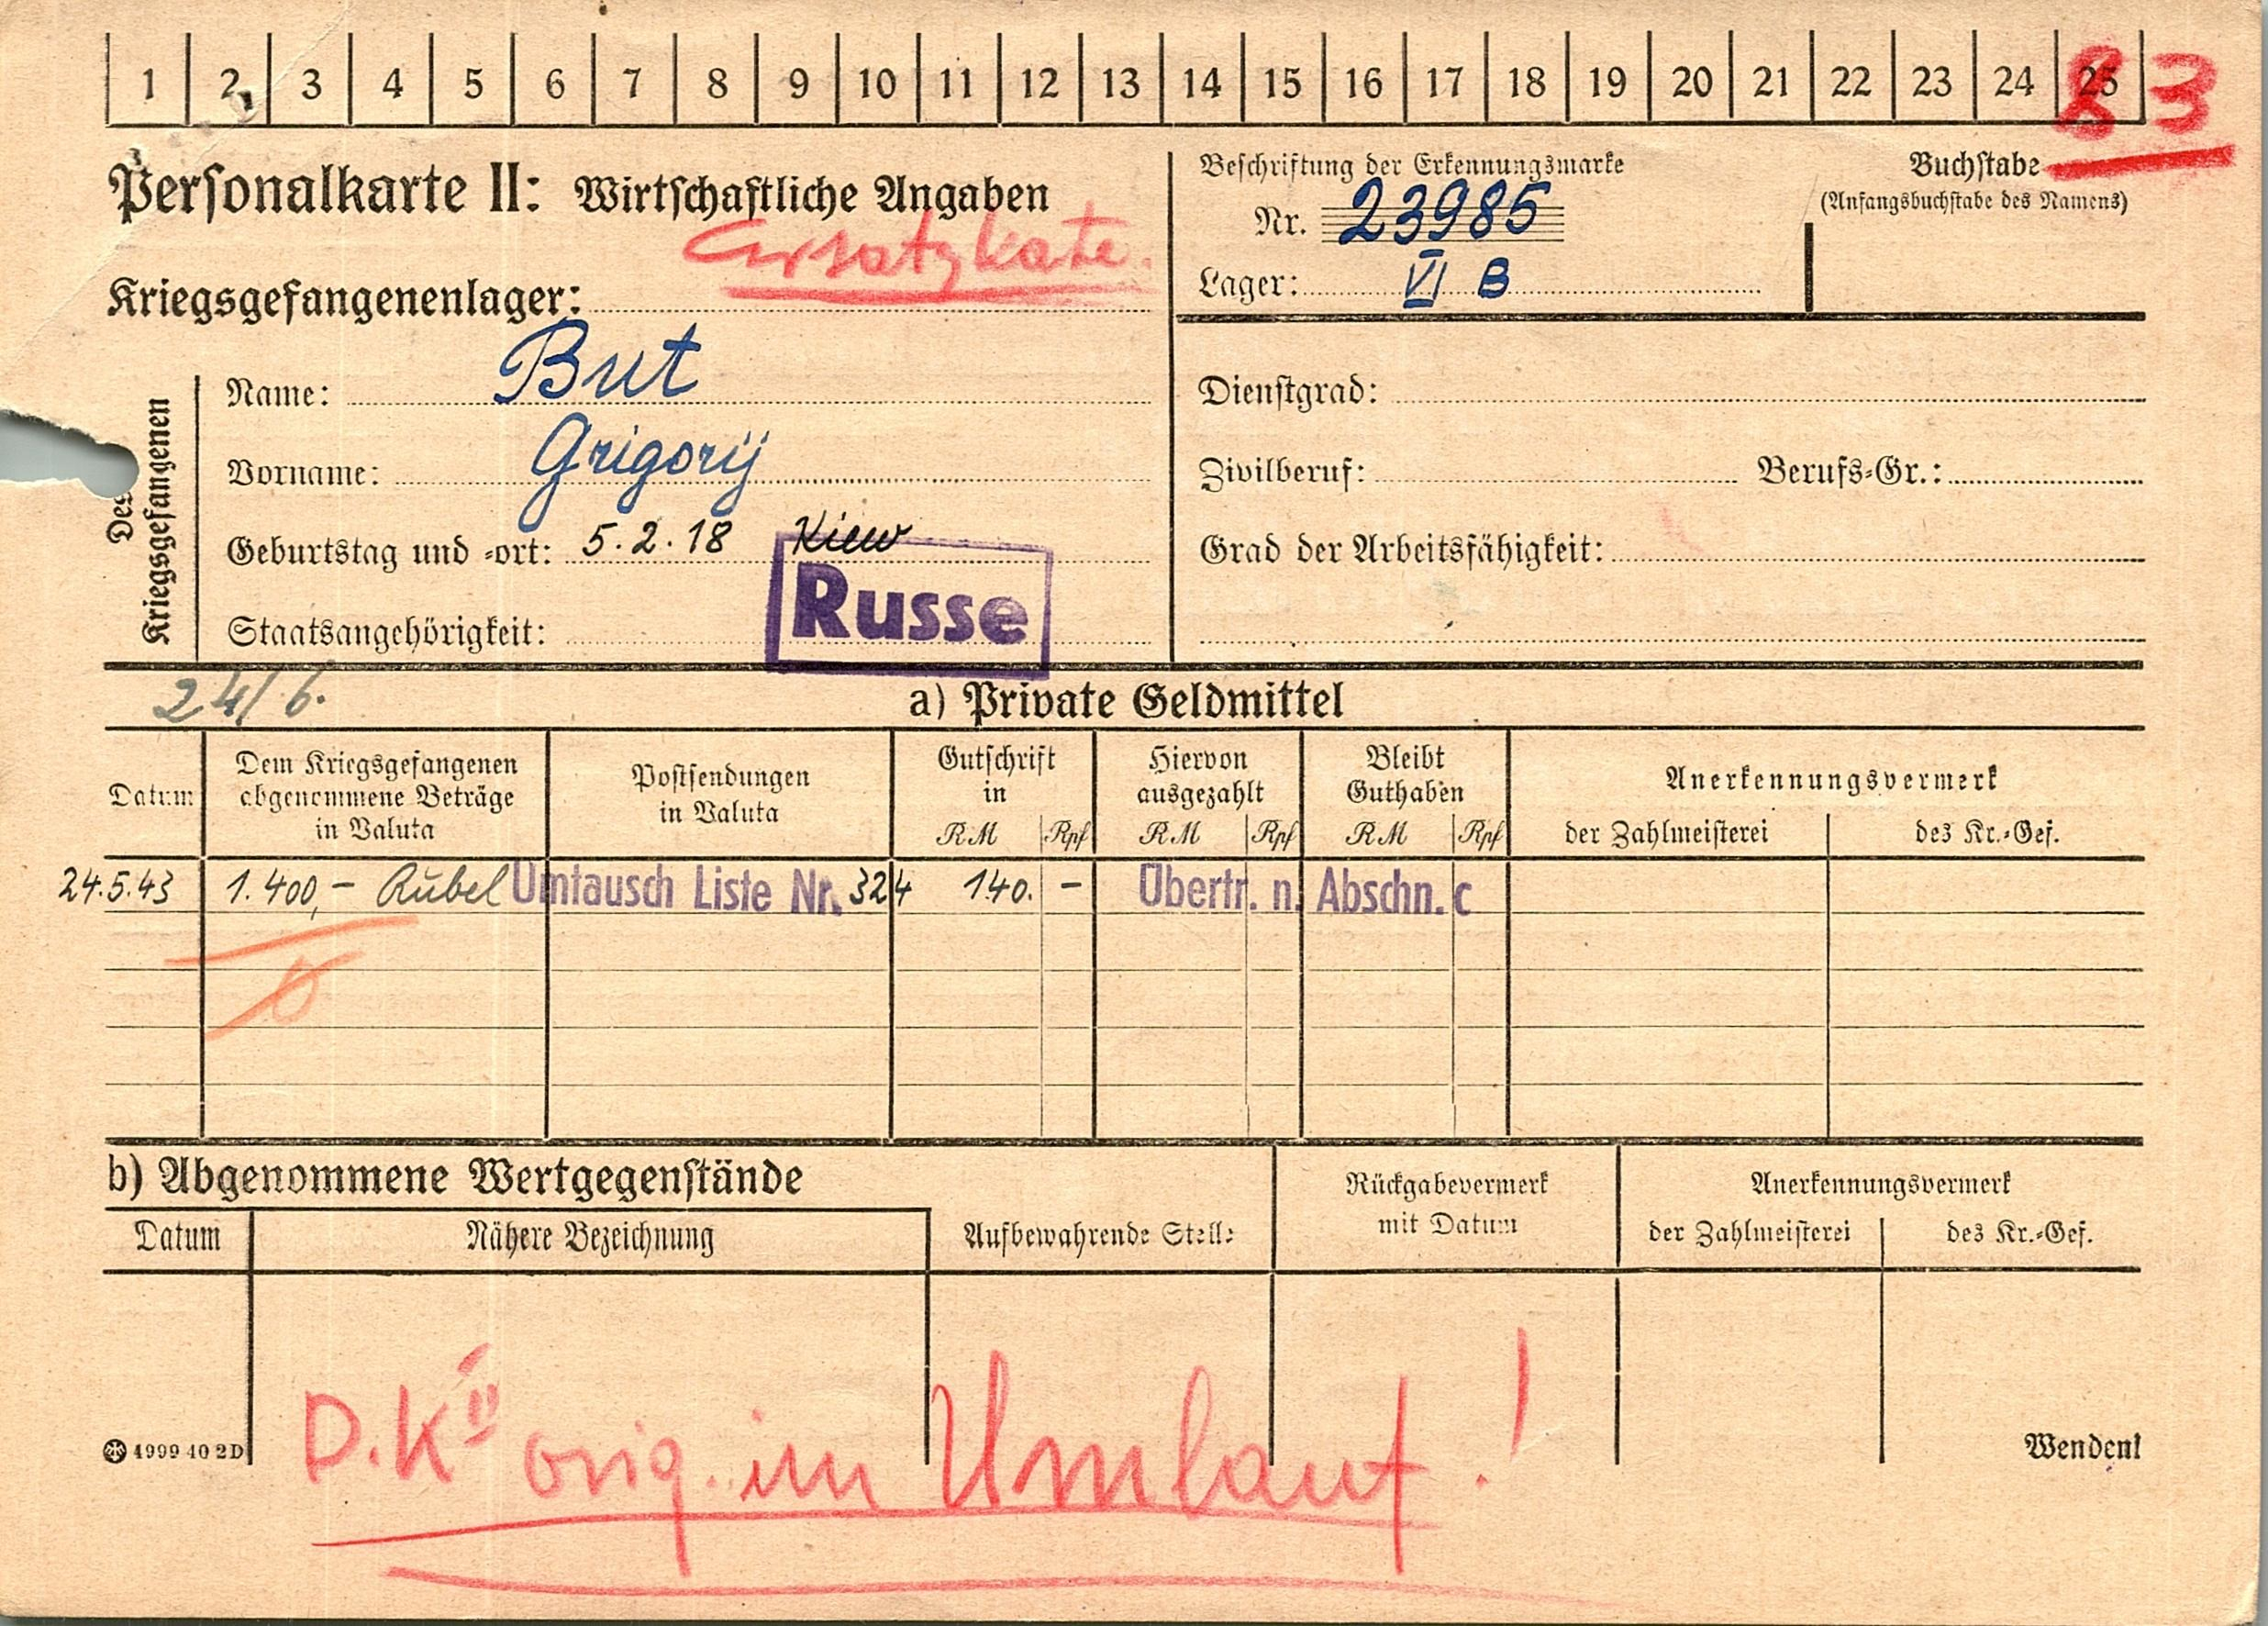 1 2 3 4 5 6 7 8 9 10 11 12 13 14 15 16 17 18 19 20 21 22 23 24 25
83
Personalkarte II: Wirtschaftliche Angaben
Ersatzkate.
Kriegsgefangenenlager:
Beschriftung der Erkennungsmarke
Nr. 23985
Lager: VI B
Buchstabe
(Anfangsbuchstabe des Namens)
Des Kriegsgefangenen
Name: But
Vorname: Grigorij
Geburtstag und -ort: 5.2.18 Kiew
Staatsangehörigkeit: Russe
Dienstgrad:
Zivilberuf: Berufs-Gr.:
Grad der Arbeitsfähigkeit:
24/6.
a) Private Geldmittel
Datum
Dem Kriegsgefangenen
abgenommene Beträge
in Valuta
Postsendungen
in Valuta
Gutschrift
in
RM Rpf
Hiervon
ausgezahlt
RM Rpf
Bleibt
Guthaben
RM Rpf
Anerkennungsvermerk
der Zahlmeisterei des Kr.-Gef.
24.5.43 1.400,- Rubel Umtausch Liste Nr. 324 140. - Übertr. n. Abschn. c
b) Abgenommene Wertgegenstände
Datum Nähere Bezeichnung
Aufbewahrende Stelle
Rückgabevermerk
mit Datum
Anerkennungsvermerk
der Zahlmeisterei des Kr.-Gef.
D.K II orig. im Umlauf!
4999 40 2D
Wenden!